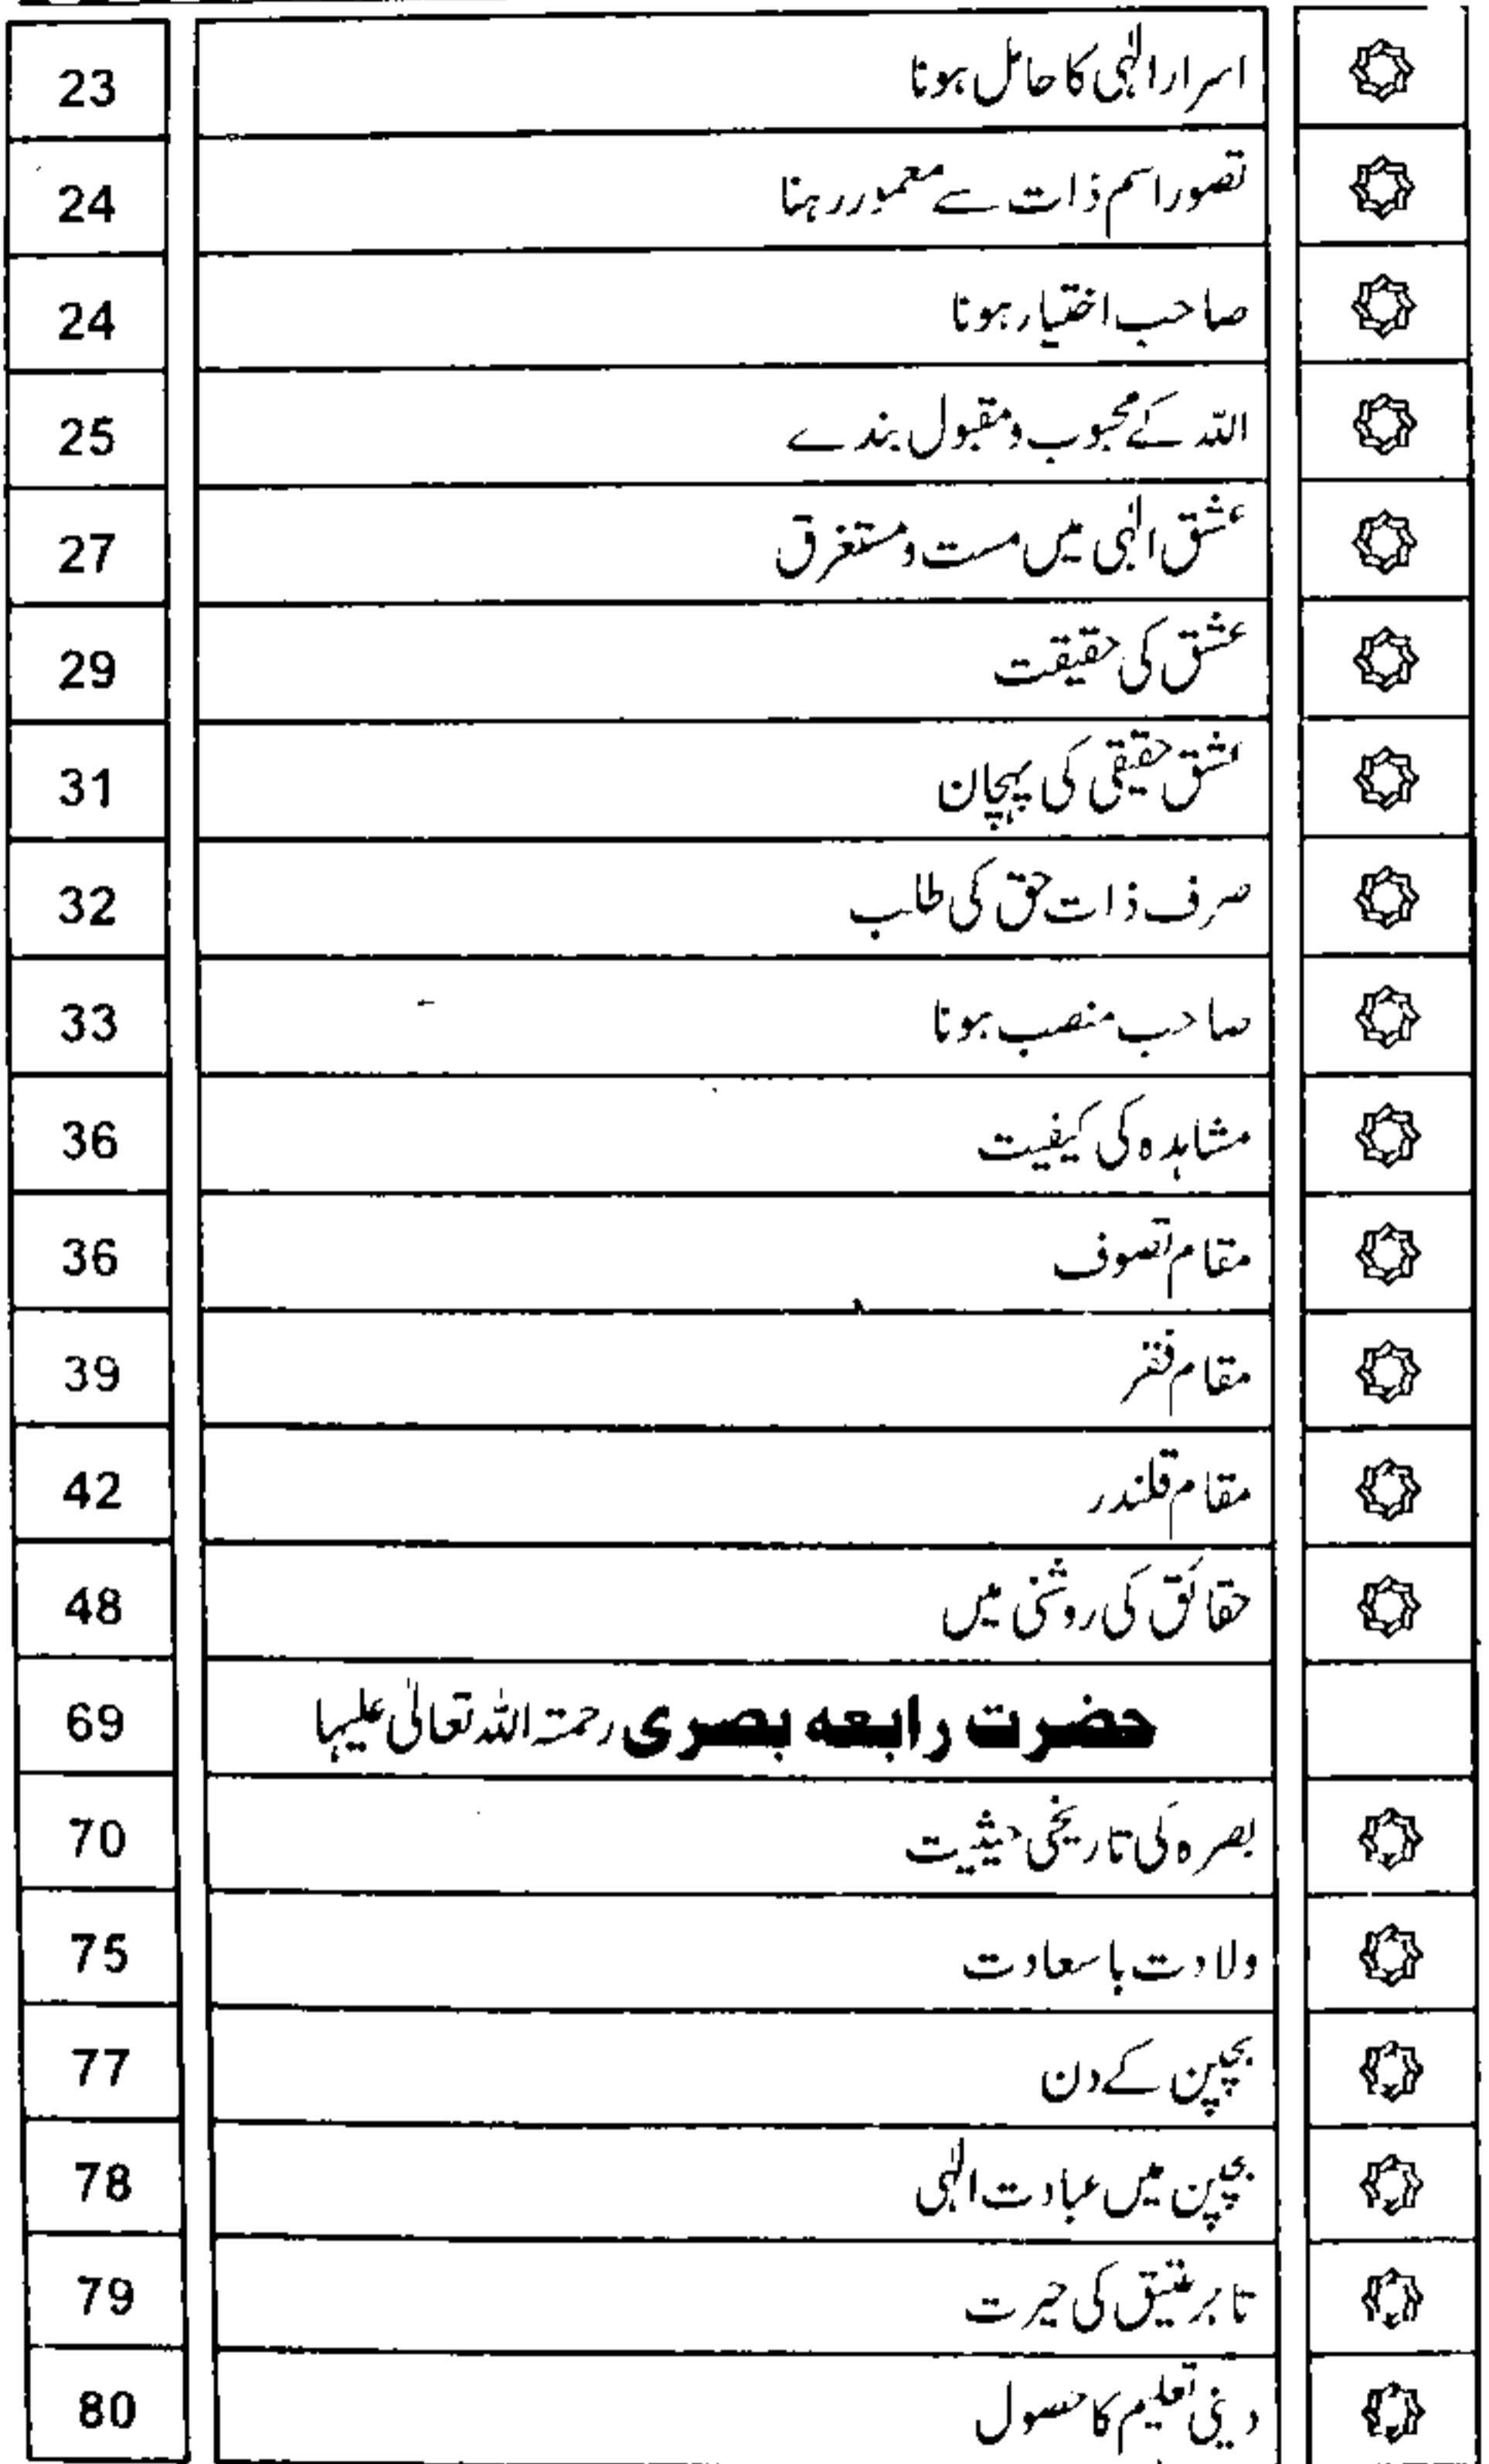 اسرار الٰہی کا حامل ہونا 23
تصور اسم ذات سے معمور رہنا 24
صاحب اختیار ہونا 24
اللہ کے محبوب و مقبول بندے 25
عشق الٰہی میں مست و مستغرق 27
عشق کی حقیقت 29
عشق حقیقی کی پہچان 31
صرف ذات حق کی طالب 32
صاحب منصب ہونا 33
مشاہدہ کی کیفیت 36
مقام تصوف 36
مقام فقر 39
مقام قلندر 42
حقائق کی روشنی میں 48
حضرت رابعہ بصری رحمتہ اللہ تعالیٰ علیہا 69
بصرہ کی تاریخی حیثیت 70
ولادت باسعادت 75
بچپن کے دن 77
بچپن میں عبادت الٰہی 78
تاجر عتیق کی حیرت 79
دینی تعلیم کا حصول 80